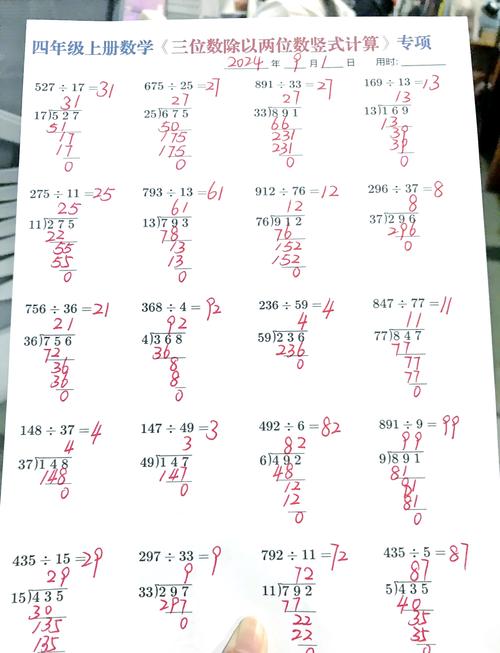 四年级上册数学《三位数除以两位数竖式计算》专项
2024 年 9 月 1 日 用时:
527 ÷ 17 = 31
31
17)527
51
17
17
0
675 ÷ 25 = 27
27
25)675
50
175
175
0
891 ÷ 33 = 27
27
33)891
66
231
231
0
169 ÷ 13 = 13
13
13)169
13
39
39
0
275 ÷ 11 = 25
25
11)275
22
55
55
0
793 ÷ 13 = 61
61
13)793
78
13
13
0
912 ÷ 76 = 12
12
76)912
76
152
152
0
296 ÷ 37 = 8
8
37)296
296
0
756 ÷ 36 = 21
21
36)756
72
36
36
0
368 ÷ 4 = 92
92
4)368
36
8
8
0
236 ÷ 59 = 4
4
59)236
236
0
847 ÷ 77 = 11
11
77)847
77
77
77
0
148 ÷ 37 = 4
4
37)148
148
0
147 ÷ 49 = 3
3
49)147
147
0
492 ÷ 6 = 82
82
6)492
48
12
12
0
891 ÷ 9 = 99
99
9)891
81
81
81
0
435 ÷ 15 = 29
29
15)435
30
135
135
297 ÷ 33 = 9
9
33)297
297
0
792 ÷ 11 = 72
72
11)792
77
22
22
0
435 ÷ 5 = 87
87
5)435
40
35
35
0